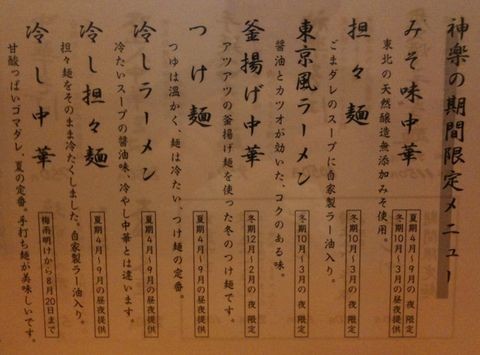 神楽の期間限定メニュー
みそ味中華
冬期4月〜9月の昼夜提供
冬期10月〜3月の夜 限定
東北の天然醸造無添加みそ使用。
担々麺
冬期10月〜3月の夜 限定
ごまダレのスープに自家製ラー油入り。
東京風ラーメン
冬期10月〜3月の夜 限定
醤油とカツオが効いた、コクのある味。
釜揚げ中華
冬期12月〜2月の夜 限定
アツアツの釜揚げ麺を使った冬のつけ麺です。
つけ麺
夏期4月〜9月の昼夜提供
つゆは温かく、麺は冷たい、つけ麺の定番。
冷しラーメン
夏期4月〜9月の昼夜提供
冷たいスープの醤油味、冷やし中華とは違います。
冷し担々麺
夏期4月〜9月の昼夜提供
担々麺をそのまま冷たくしました。自家製ラー油入り。
冷し中華
梅雨明けから8月20日まで
甘酸っぱいゴマダレ、夏の定番。手打ち麺が美味しいです。